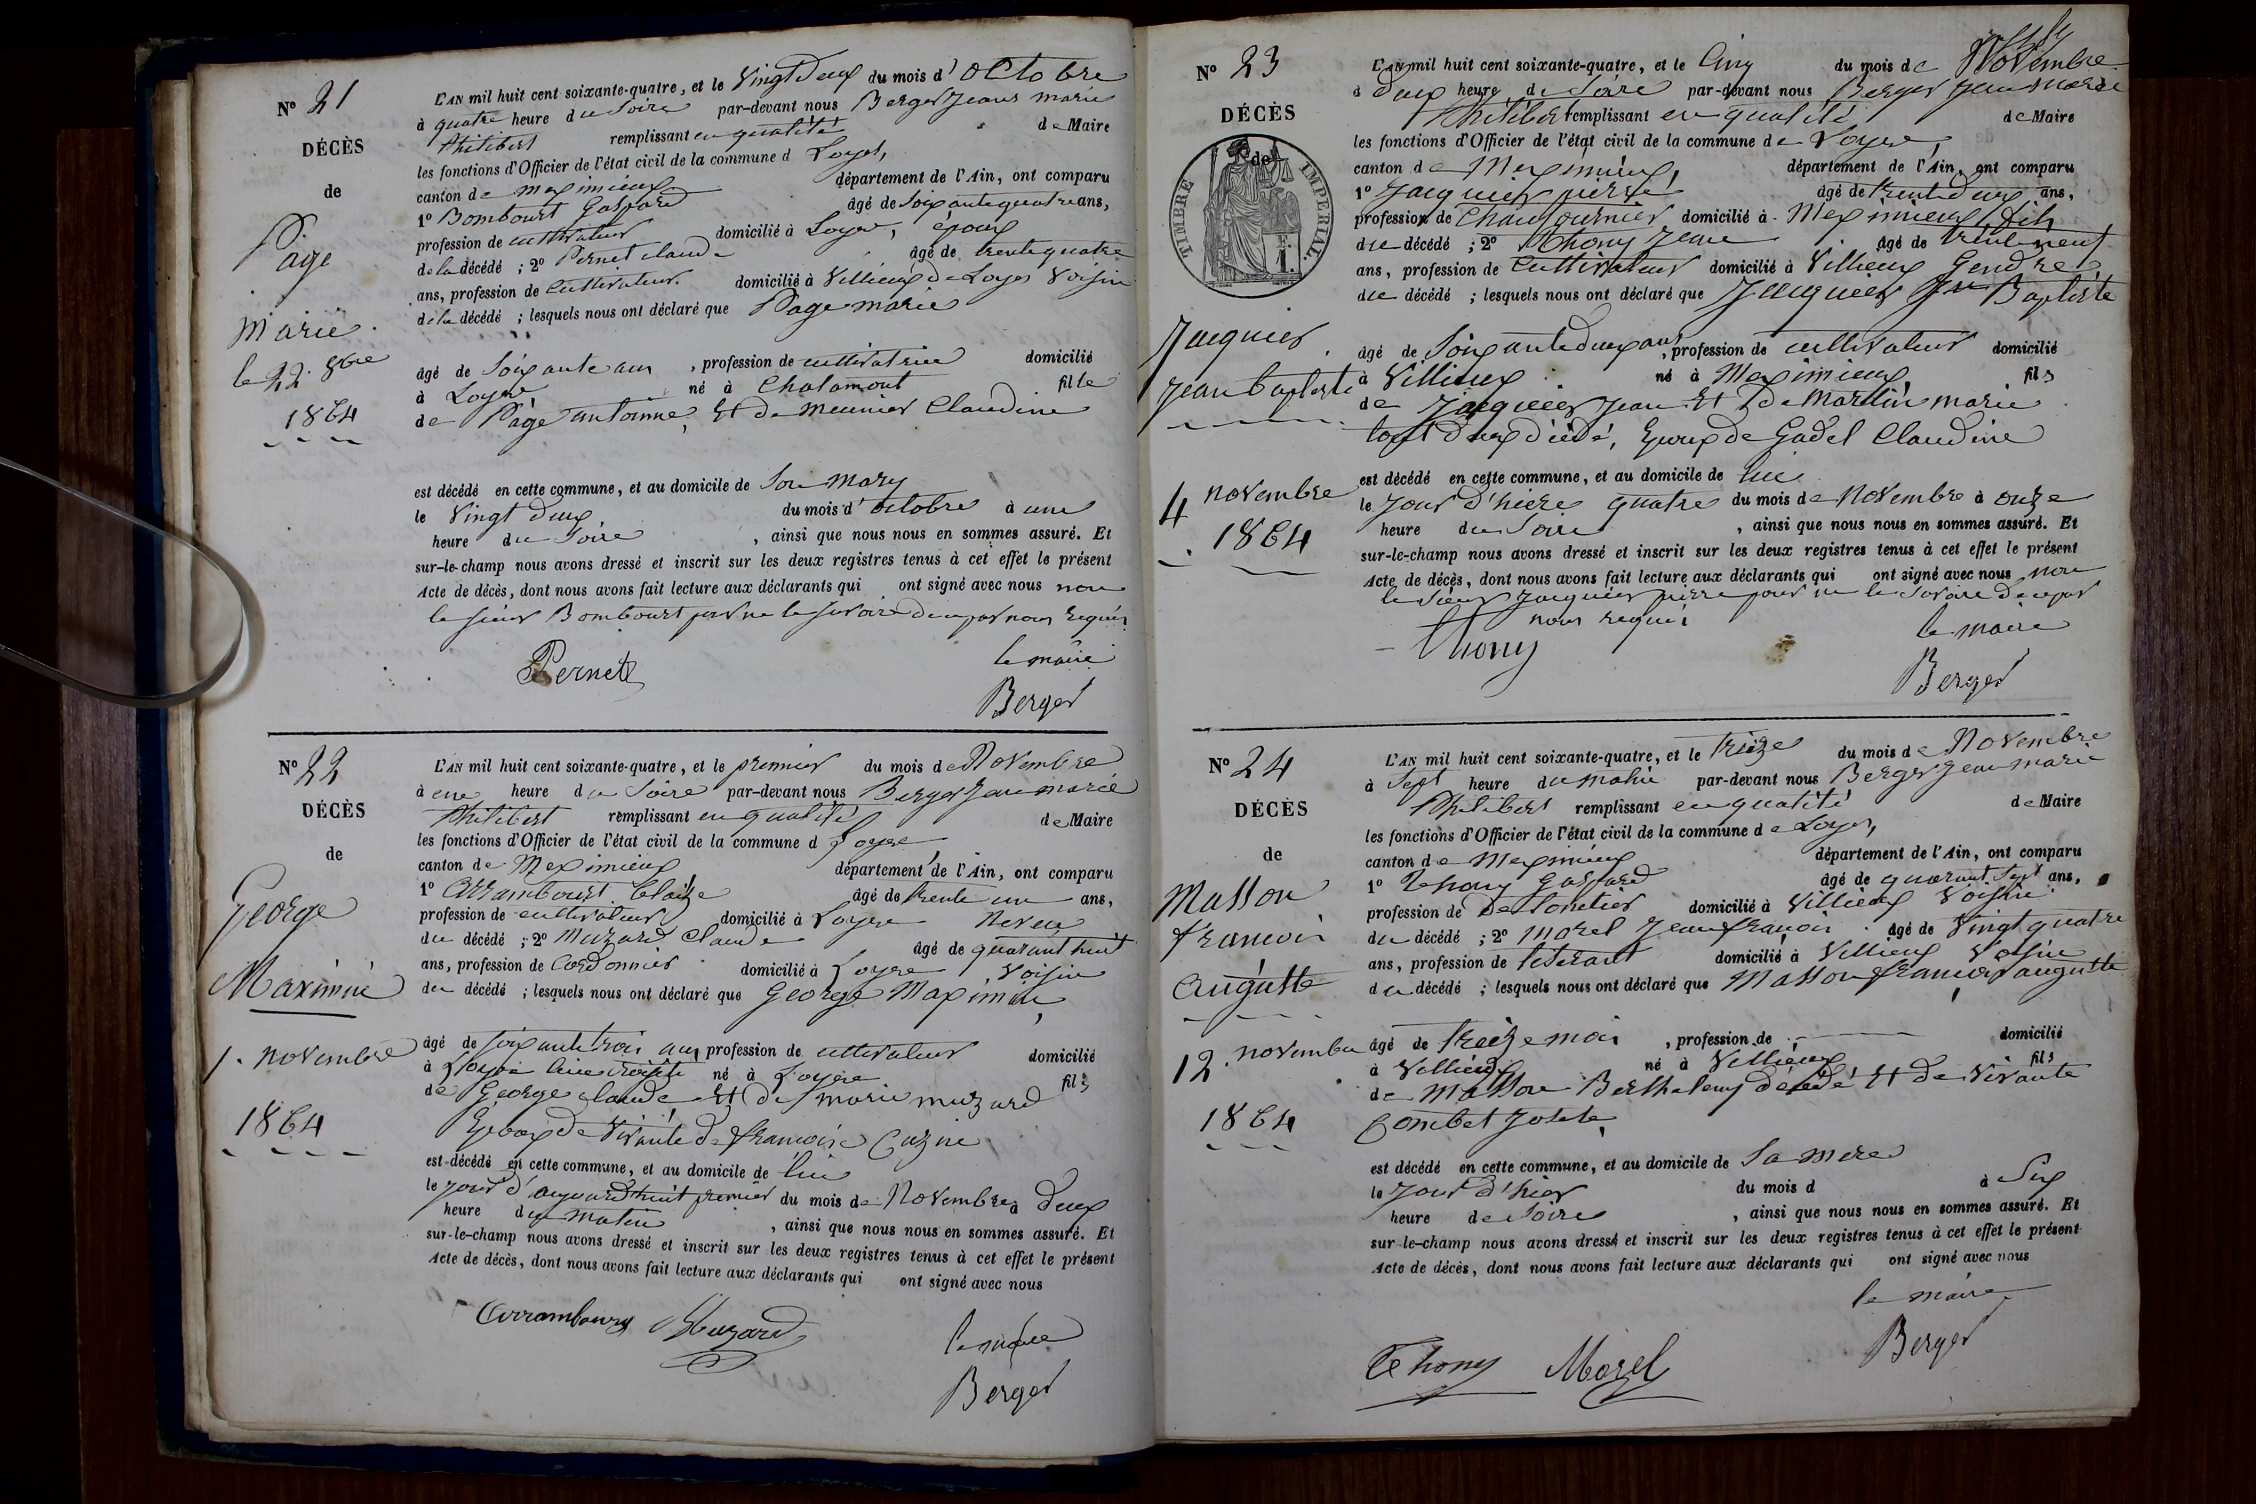 N° 21
DÉCÈS
de
Page
marie
le 22. 8bre
1864
L'AN mil huit cent soixante-quatre, et le Vingt deux du mois d'octobre
à quatre heure du Soire par-devant nous Berger Jean marie
Philibert remplissant en qualité de Maire
les fonctions d'Officier de l'état civil de la commune d Loyes,
canton de meximieux département de l'Ain, ont comparu
1° Bombourt Gaspard âgé de Soixante quatre ans,
profession de cultivateur domicilié à Loyes, époux
de la décédé ; 2° Pernet claude âgé de trente quatre
ans, profession de Cultivateur. domicilié à Villieux de Loyes Voisin
de la décédé ; lesquels nous ont déclaré que Page marie
âgé de Soixante ans , profession de cultivatrice domicilié
à Loyes né à Chalamont fille
de Page antoinne, Et de meunier Claudine
est décédé en cette commune, et au domicile de Son mary
le Vingt deux du mois d'octobre à une
heure du Soire , ainsi que nous nous en sommes assuré. Et
sur-le-champ nous avons dressé et inscrit sur les deux registres tenus à cet effet le présent
Acte de décès, dont nous avons fait lecture aux déclarants qui ont signé avec nous non
le sieur Bombourt pour ne le savoire de ce par nous Requis
Pernet
le maire
Berger
N° 22
DÉCÈS
de
George
Maximin
1. novembre
1864
L'AN mil huit cent soixante-quatre, et le premier du mois de Novembre
à une heure du Soire par-devant nous Berger Jean marie
Philibert remplissant en qualité de Maire
les fonctions d'Officier de l'état civil de la commune d Loyes
canton de Meximieux département de l'Ain, ont comparu
1° Arrambourt Claize âgé de trente un ans,
profession de cultivateur domicilié à Loyes Neveu
du décédé ; 2° Muzard Claude âgé de quarant huit
ans, profession de Cordonnier domicilié à Loyes Voisin
du décédé ; lesquels nous ont déclaré que George Maximin,
âgé de soixante trois ans profession de cultivateur domicilié
à Loyes né à Loyes fils
de George claude Et de marie muzard
Epoux de Vivante de françoise Cuzin
est décédé en cette commune, et au domicile de lui
le jour d'aujourd'huit premier du mois de Novembre à deux
heure du matin , ainsi que nous nous en sommes assuré. Et
sur-le-champ nous avons dressé et inscrit sur les deux registres tenus à cet effet le présent
Acte de décès, dont nous avons fait lecture aux déclarants qui ont signé avec nous
Arrambourg Muzard
le maire
Berger
N° 23
DÉCÈS
de
TIMBRE IMPÉRIAL
F.
1.
Jacquier
Jean baptiste
4 novembre
1864
L'AN mil huit cent soixante-quatre, et le Cinq du mois de Novembre
à Deux heure de Soire par-devant nous Berger Jean marie
Philibert remplissant en qualité de Maire
les fonctions d'Officier de l'état civil de la commune de Loyes,
canton de Meximieux, département de l'Ain, ont comparu
1° Jacquier pierre, âgé de trente deux ans,
profession de Chaufournier domicilié à Meximieux fils
du décédé ; 2° Thony Jean âgé de trente neuf
ans, profession de Cultivateur domicilié à Villieux Gendre
du décédé ; lesquels nous ont déclaré que Jacquier Jn Baptiste
âgé de Soixante deux ans, profession de cultivateur domicilié
à Villieux né à Meximieux fils
de Jacquier Jean Et de Martin marie
tout deux décédé, Epoux de Gadel Claudine
est décédé en cette commune, et au domicile de lui
le Jour d'hiere quatre du mois de Novembre à onze
heure du Soire , ainsi que nous nous en sommes assuré. Et
sur-le-champ nous avons dressé et inscrit sur les deux registres tenus à cet effet le présent
Acte de décès, dont nous avons fait lecture aux déclarants qui ont signé avec nous non
le Sieur Jacquier pierre pour ne le Savoire de ce par
nous requis
Thony
le maire
Berger
N° 24
DÉCÈS
de
Masson
françois
Auguste
12. novembre
1864
L'AN mil huit cent soixante-quatre, et le treize du mois de Novembre
à Sept heure du matin par-devant nous Berger Jean marie
Philibert remplissant en qualité de Maire
les fonctions d'Officier de l'état civil de la commune de Loyes,
canton de Meximieux département de l'Ain, ont comparu
1° Thony Gaspard âgé de quarant Sept ans,
profession de domicilié à Villieux Voisin
du décédé ; 2° morel Jean françois âgé de Vingt quatre
ans, profession de domicilié à Villieux Voisin
du décédé ; lesquels nous ont déclaré que Masson françois auguste
âgé de treize mois , profession de domicilié
à Villieux né à Villieux fils
de Masson Berthelemy décédé Et de Vivante
Combet Josete
est décédé en cette commune, et au domicile de Sa mere
le Jour d'hier du mois d à Six
heure de Soire , ainsi que nous nous en sommes assuré. Et
sur-le-champ nous avons dressé et inscrit sur les deux registres tenus à cet effet le présent
Acte de décès, dont nous avons fait lecture aux déclarants qui ont signé avec nous
le maire
Thony Morel
Berger